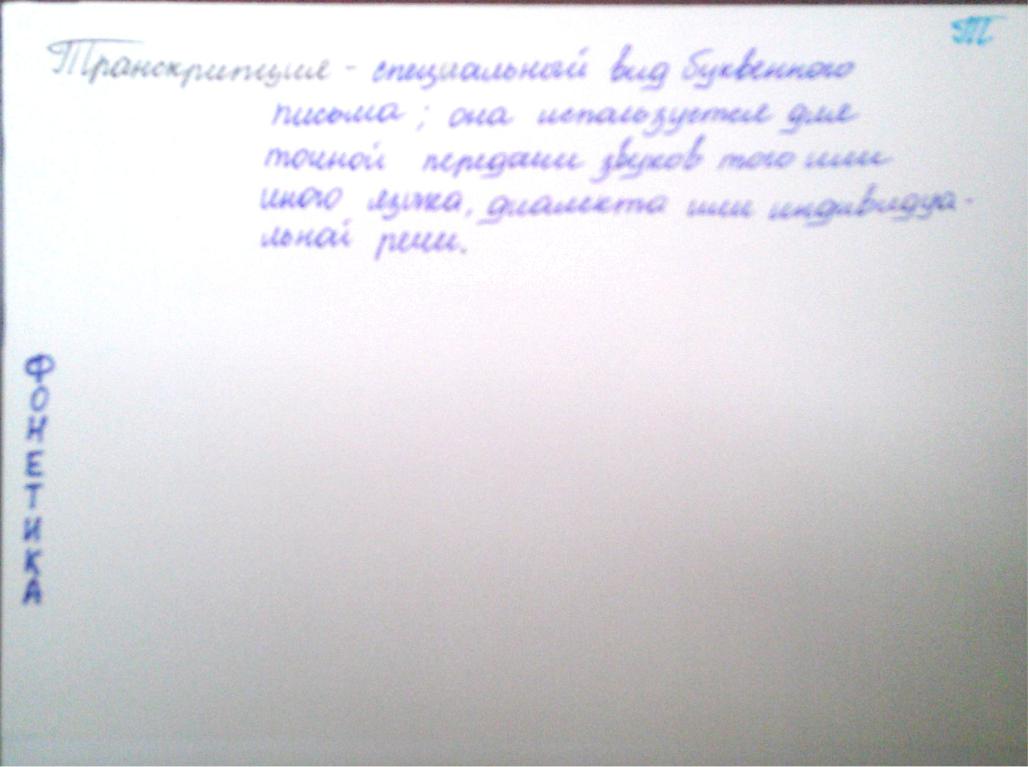 Т
Транскрипция - специальный вид буквенного
письма; она используется для
точной передачи звуков того или
иного языка, диалекта или индивидуа-
льной речи.
ФОНЕТИКА